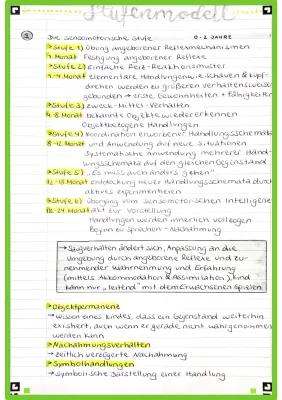 Stufenmodell
① Die sensomotorische Stufe 0-2 JAHRE
→Stufe 1) Übung angeborener Reflexmechanismen
1. Monat Festigung angeborener Reflexe
→Stufe 2) Einfache Reiz-Reaktionsmuster
1-4 Monat elementare Handlungen wie schauen & Kopf-
drehen werden zu größeren Verhaltensweisen
gebunden → erste Gewohnheiten + Fähigkeiten
→Stufe 3) Zweck-Mittel-Verhalten
4-8 Monat bekannte Objekte wiedererkennen
Objektbezogene Handlungen
→Stufe 4) Koordination erworbener Handlungsschemata
8-12 Monat und Anwendung auf neue Situationen
Systematische Anwendung mehrerer Hand-
lungsschemata auf den gleichen Gegenstand
→Stufe 5) „Es muss auch anders gehen"
12-18 Monat Entdeckung neuer Handlungsschemata durch
aktives experimentieren
→Stufe 6) Übergang vom sensomotorischen Intelligenz-
18-24 Monat akt zur Vorstellung
Handlungen werden innerlich vollzogen
Beginn zu sprechen - Nachahmung
→ Saugverhalten ändert sich, Anpassung an die
Umgebung durch angeborene Reflexe und zu-
nehmender Wahrnehmung und Erfahrung
(mittels Akkommodation & Assimilation), Kind
kann nur „leitend" mit dem Erwachsenen spielen
→Objektpermanenz
→ Wissen eines Kindes, dass ein Gegenstand weiterhin
existiert, auch wenn er gerade nicht wahrgenommen
werden kann
→Nachahmungsverhalten
→ zeitlich verzögerte Nachahmung
→Symbolhandlungen
→ symbolische Darstellung einer Handlung